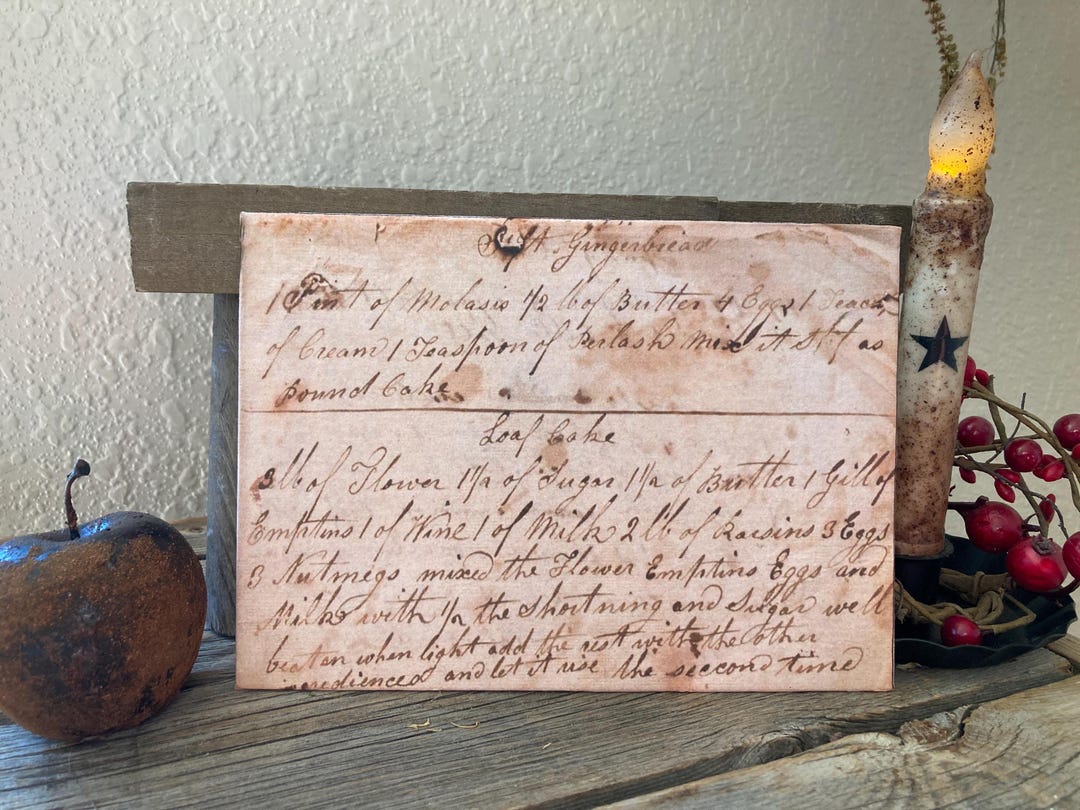 Soft Gingerbread
1 Pint of Molasis 1/2 lb of Butter 4 Eggs 1 Teacup
of Cream 1 Teaspoon of Perlash mix it Stif as
pound Cake
Loaf Cake
3 lb of Flower 1 1/2 of Sugar 1 1/2 of Butter 1 Gill of
Emptins 1 of Wine 1 of Milk 2 lb of Raisins 3 Eggs
3 Nutmegs mixed the Flower Emptins Eggs and
Milk with 1/2 the Shortning and Sugar well
beaten when light add the rest with the other
ingredienced and let it rise the seccond time